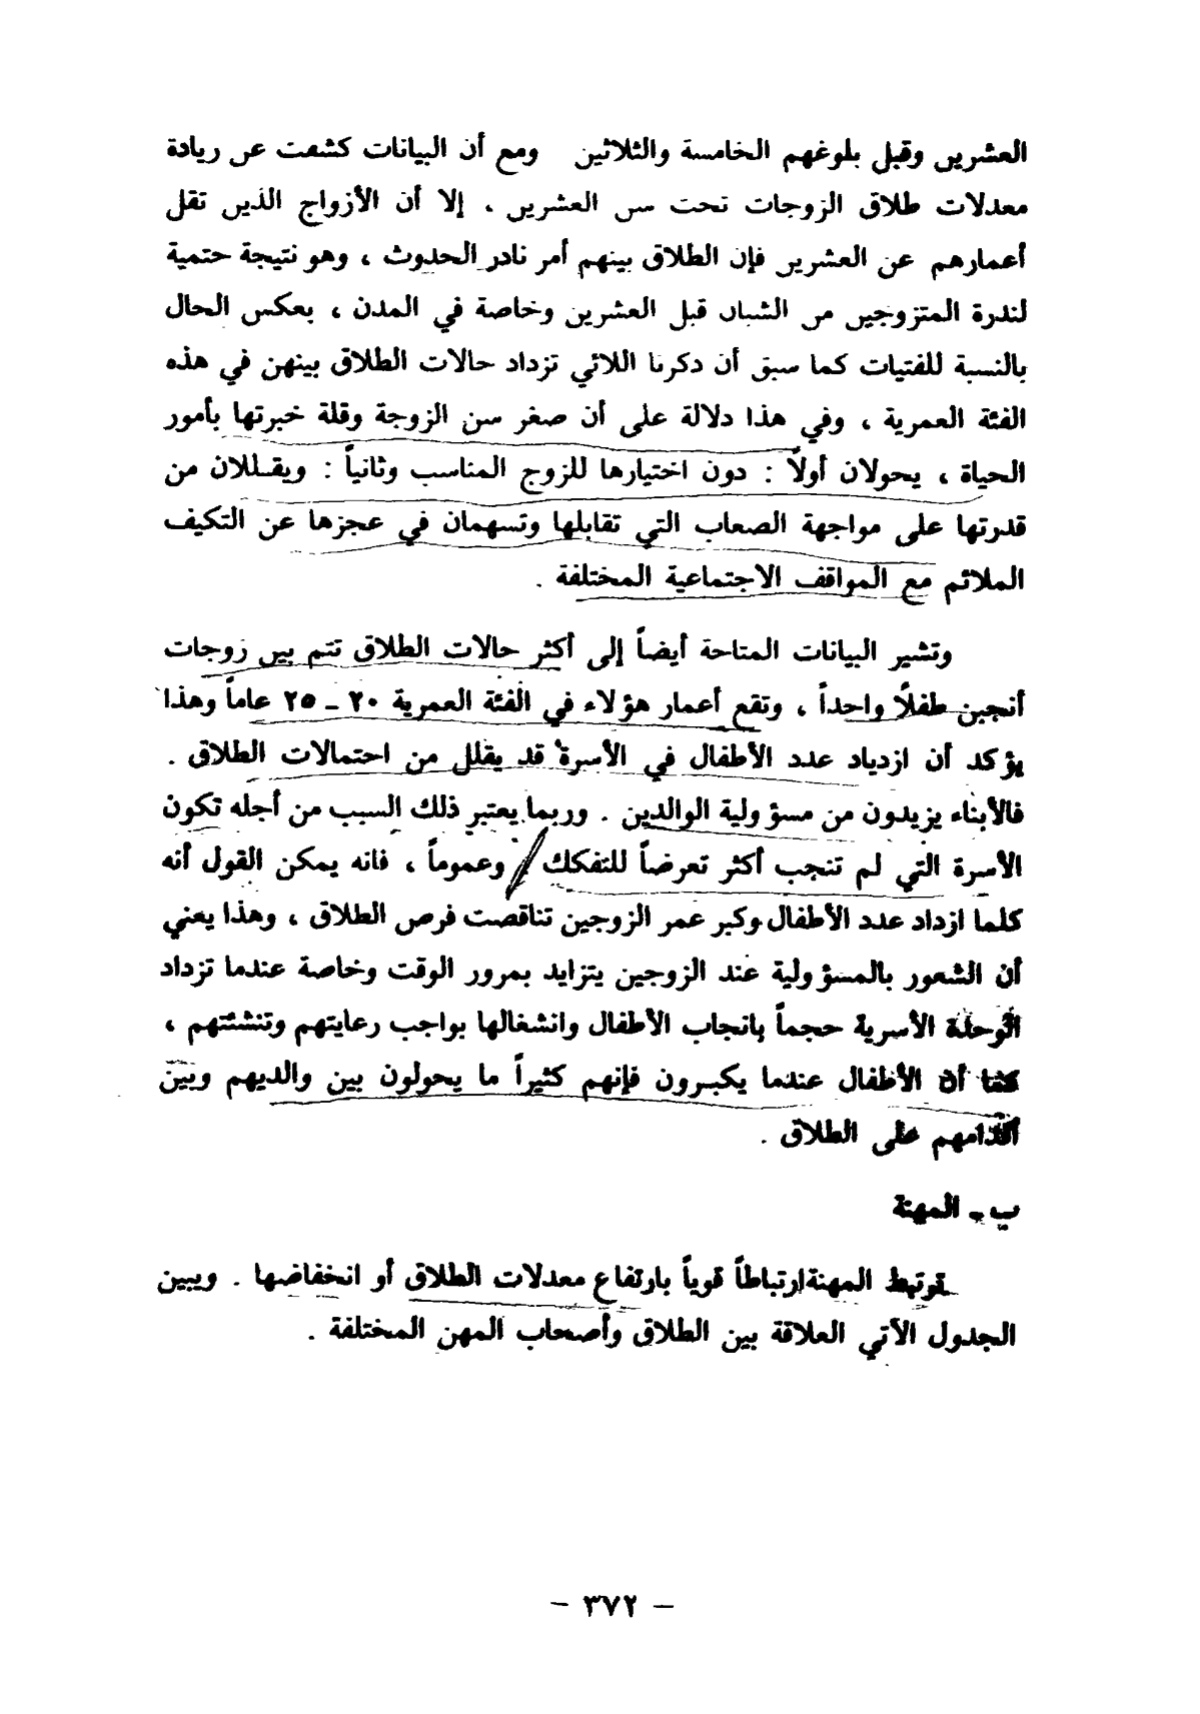 العشرين وقبل بلوغهم الخامسة والثلاثين ومع أن البيانات كشفت عن زيادة
معدلات طلاق الزوجات تحت سن العشرين ، إلا أن الأزواج الذين تقل
أعمارهم عن العشرين فإن الطلاق بينهم أمر نادر الحدوث ، وهو نتيجة حتمية
لندرة المتزوجين من الشبان قبل العشرين وخاصة في المدن ، بعكس الحال
بالنسبة للفتيات كما سبق أن ذكرنا اللائي تزداد حالات الطلاق بينهن في هذه
الفئة العمرية ، وفي هذا دلالة على أن صغر سن الزوجة وقلة خبرتها بأمور
الحياة ، يحولان أولاً : دون اختيارها للزوج المناسب وثانياً : ويقـللان من
قدرتها على مواجهة الصعاب التي تقابلها وتسهمان في عجزها عن التكيف
الملائم مع المواقف الاجتماعية المختلفة .
وتشير البيانات المتاحة أيضاً إلى أكثر حالات الطلاق تتم بين زوجات
أنجبن طفلًا واحداً ، وتقع أعمار هؤلاء في الفئة العمرية ٢٠ ـ ٢٥ عاماً وهذا
يؤكد أن ازدياد عدد الأطفال في الأسرة قد يقلل من احتمالات الطلاق .
فالأبناء يزيدون من مسؤولية الوالدين . وربما يعتبر ذلك السبب من أجله تكون
الأسرة التي لم تنجب أكثر تعرضاً للتفكك وعموماً ، فانه يمكن القول أنه
كلما ازداد عدد الأطفال وكبر عمر الزوجين تناقصت فرص الطلاق ، وهذا يعني
أن الشعور بالمسؤولية عند الزوجين يتزايد بمرور الوقت وخاصة عندما تزداد
الوحدة الأسرية حجماً بانجاب الأطفال وانشغالها بواجب رعايتهم وتنشئتهم ،
كما أن الأطفال عندما يكبـرون فإنهم كثيراً ما يحولون بين والديهم وبين
اقدامهم على الطلاق .
ب ـ المهنة
ترتبط المهنة ارتباطاً قوياً بارتفاع معدلات الطلاق أو انخفاضها . ويبين
الجدول الآتي العلاقة بين الطلاق وأصحاب المهن المختلفة .
– ٣٧٢ –